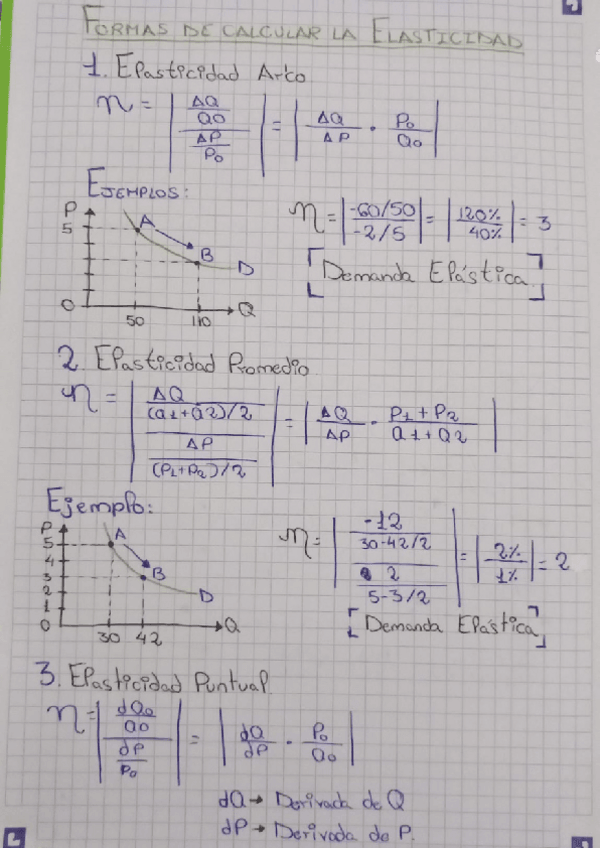 FORMAS DE CALCULAR LA ELASTICIDAD
1. Elasticidad Arco
n = | (ΔQ/Q0) / (ΔP/P0) | = | ΔQ/ΔP · P0/Q0 |
EJEMPLOS:
P
5
A
B
D
0
50
110
Q
n = | (-60/50) / (-2/5) | = | 120% / 40% | = 3
[Demanda Elástica]
2. Elasticidad Promedio
n = | (ΔQ / (Q1+Q2)/2) / (ΔP / (P1+P2)/2) | = | ΔQ/ΔP · P1+P2 / Q1+Q2 |
Ejemplo:
P
5
4
3
2
1
0
A
B
D
30
42
Q
n = | (-12 / 30-42/2) / (2 / 5-3/2) | = | 2% / 1% | = 2
[Demanda Elástica]
3. Elasticidad Puntual
n = | (dQ0/Q0) / (dP/P0) | = | dQ/dP · P0/Q0 |
dQ → Derivada de Q
dP → Derivada de P.